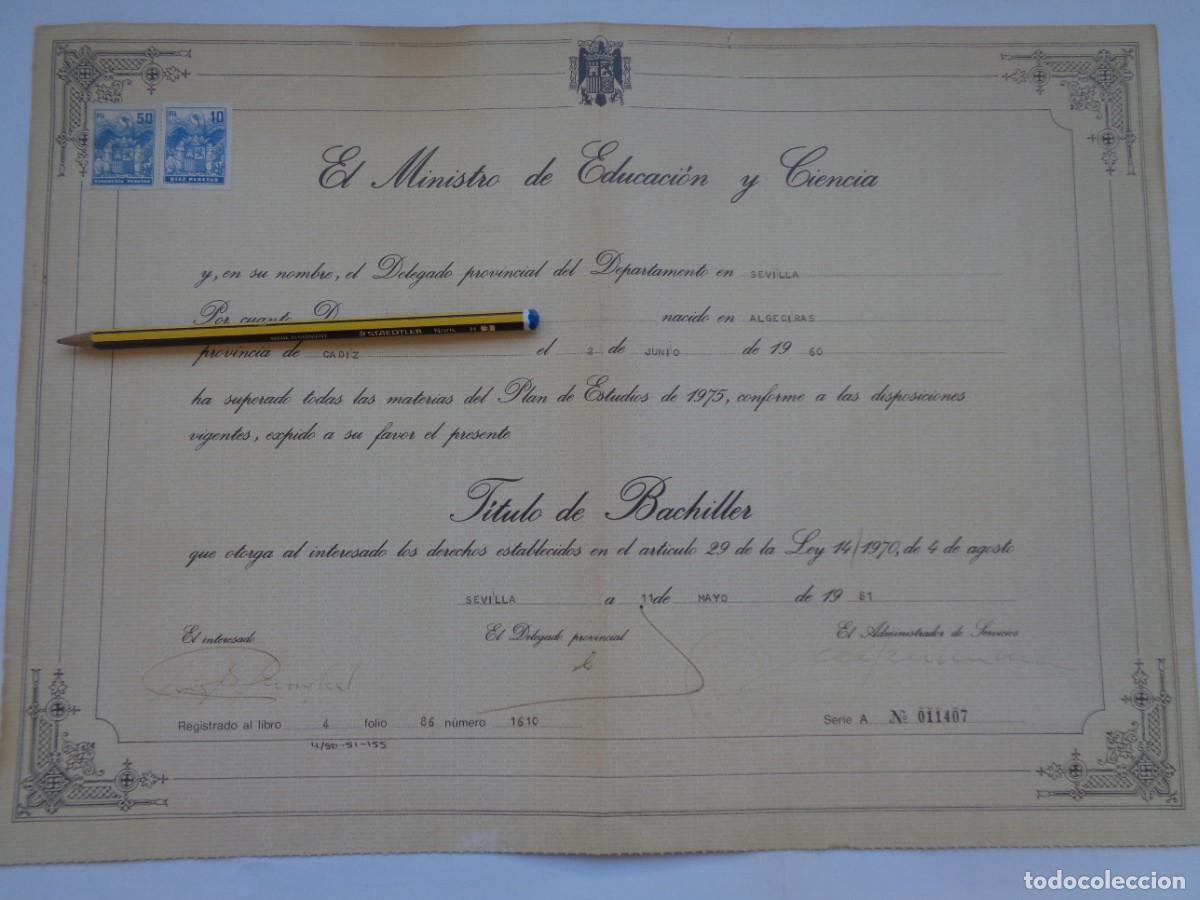 Pts 50
CINCUENTA PESETAS
Pts 10
DIEZ PESETAS
El Ministro de Educación y Ciencia
y, en su nombre, el Delegado provincial del Departamento en SEVILLA
Por cuanto D
nacido en ALGECIRAS
STAEDTLER Noris H
provincia de CADIZ el 2 de JUNIO de 19 60
ha superado todas las materias del Plan de Estudios de 1975, conforme a las disposiciones
vigentes, expido a su favor el presente
Título de Bachiller
que otorga al interesado los derechos establecidos en el artículo 29 de la Ley 14/1970, de 4 de agosto
SEVILLA a 11 de MAYO de 19 81
El interesado El Delegado provincial El Administrador de Servicios
Registrado al libro 4 folio 86 número 1610 Serie A Nº 011407
todocoleccion